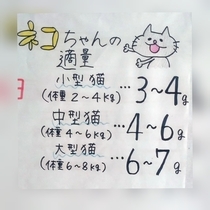 ネコちゃんの
適量
小型猫 …3～4g
(体重2～4kg)
中型猫 …4～6g
(体重4～6kg)
大型猫 …6～7g
(体重6～8kg)